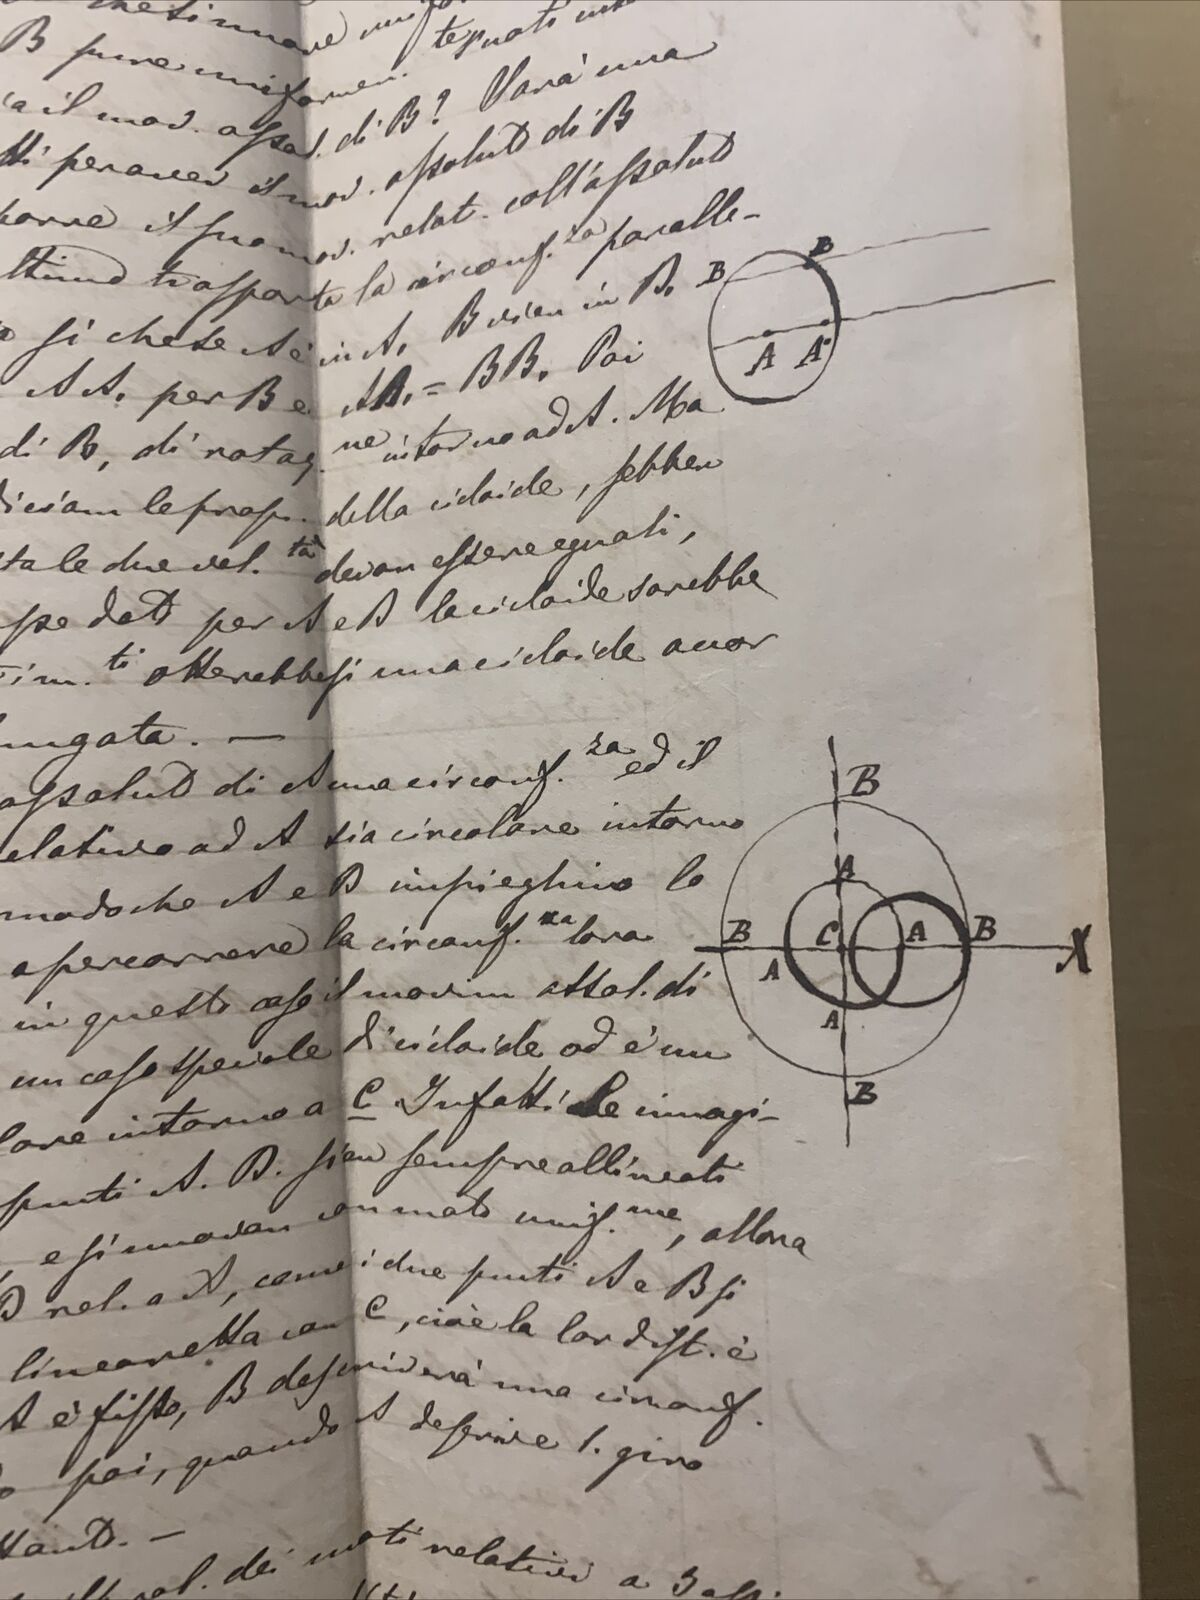 B pure uniformem.
ia il mov. assol. di B? Sarà una
tti per aver il mov. assoluto di B
porre il suo mov. relat. coll'assoluto
ultimo trasporta la circonf.za paralle-
si che se A è in A, B vien in B,
A A, per B e AA, = BB, Poi
di B, di rotaz.ne intorno ad A. Ma
diciam le prop. della cicloide, sebben
le due vel.tà devon essere eguali,
dato per A e B la cicloide sarebbe
ti otterrebbesi una cicloide accor
ungata. —
assoluto di A una circonf.za ed il
relativo ad A sia circolare intorno
modo che A e B impieghino lo
a percorrere la circonf.za loro
in questo caso il movim assol. di
un caso speciale di cicloide ed è un
lare intorno a C Infatti Se immagi-
punti A. B. sien sempre allineati
e si muovan con moto unif.me, allora
B rel. a A, come i due punti A e B si
linea retta con C, cioè la lor dist. è
A è fisso, B descriverà una circonf.
poi, quando A descrive 1. giro
tanto. —
dei moti relativi a 3 assi
B B
A A
B
A
B C A B X
A
A
B